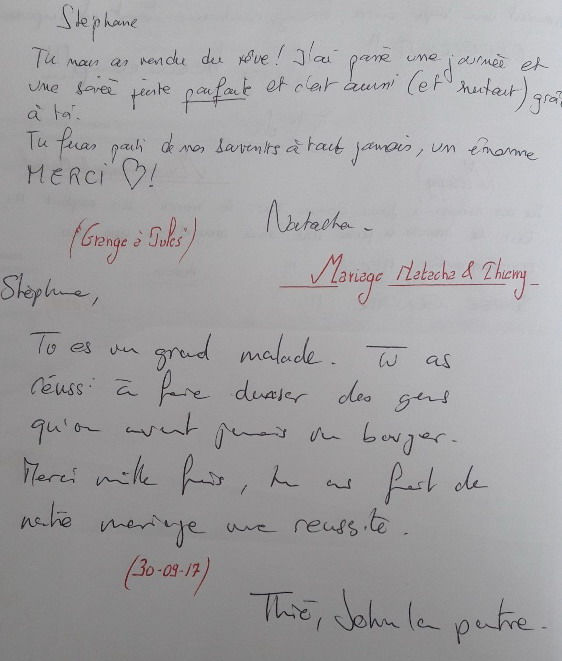 Stéphane
Tu nous as vendu du rêve! J'ai passé une journée et
une soirée juste parfaite et c'est aussi (et surtout) grâ
à toi.
Tu feras parti de nos souvenirs à tout jamais, un énorme
MERCI ♡!
Natacha-
(Grange à Jules)
Mariage Natacha & Thierry-
Stéphane,
Tu es un grand malade. Tu as
réussi à faire danser des gens
qu'on avait jamais vu bouger.
Merci mille fois, tu as fait de
notre mariage une réussite.
(30-09-17)
Thié, John la